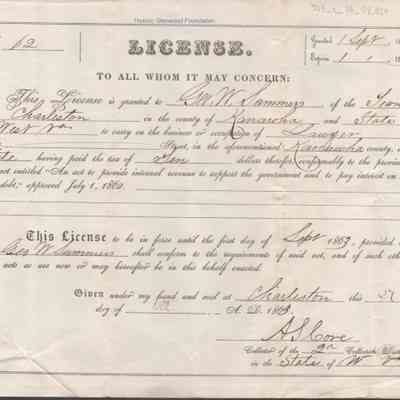 Historic Glenwood Foundation
62
LICENSE.
Granted 1 Sept
Expires 1
TO ALL WHOM IT MAY CONCERN:
This License is granted to Geo. W. Summers of the Town
Charleston in the county of Kanawha and State
West Va to carry on the business or occupation of Lawyer
in the aforementioned Kanawha county,
having paid the tax of Ten dollars therefor, conformably to the provis
act entitled "An act to provide internal revenue to support the government and to pay interest on
debt," approved July 1, 1862.
This License to be in force until the first day of Sept 1863, provided
Geo W Summers shall conform to the requirements of said act, and of such other
acts as are now or may hereafter be in this behalf enacted.
Given under my hand and seal at Charleston this
day of A. D. 1863.
Collector of the 2n Collection Dist
in the State of W V